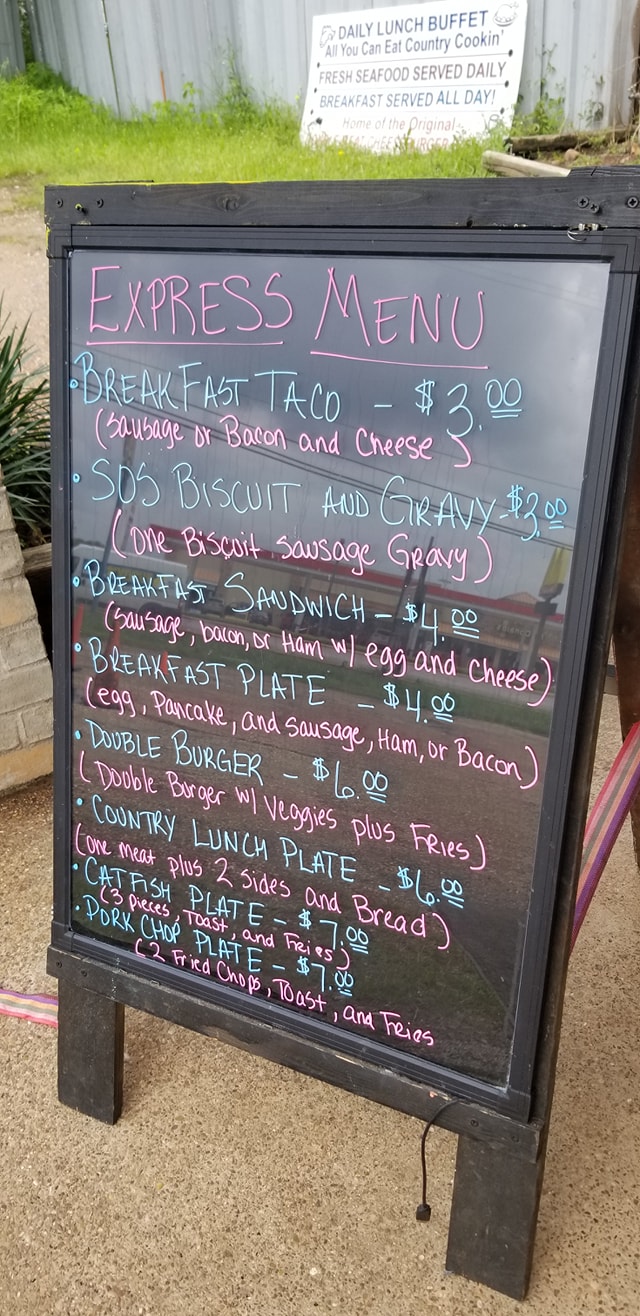 DAILY LUNCH BUFFET
All You Can Eat Country Cookin'
FRESH SEAFOOD SERVED DAILY
BREAKFAST SERVED ALL DAY!
Home of the Original
EXPRESS MENU
• BREAKFAST TACO - $3.00
(Sausage or Bacon and Cheese)
• SOS BISCUIT AND GRAVY - $3.00
(one Biscuit Sausage Gravy)
• BREAKFAST SANDWICH - $4.00
(sausage, bacon, or Ham w/ egg and cheese)
• BREAKFAST PLATE - $4.00
(egg, Pancake, and sausage, Ham, or Bacon)
• DOUBLE BURGER - $6.00
(Double Burger w/ Veggies plus Fries)
• COUNTRY LUNCH PLATE - $6.00
(one meat plus 2 sides and Bread)
• CATFISH PLATE - $7.00
(3 pieces, Toast, and Fries)
• PORK CHOP PLATE - $7.00
(2 Fried Chops, Toast, and Fries